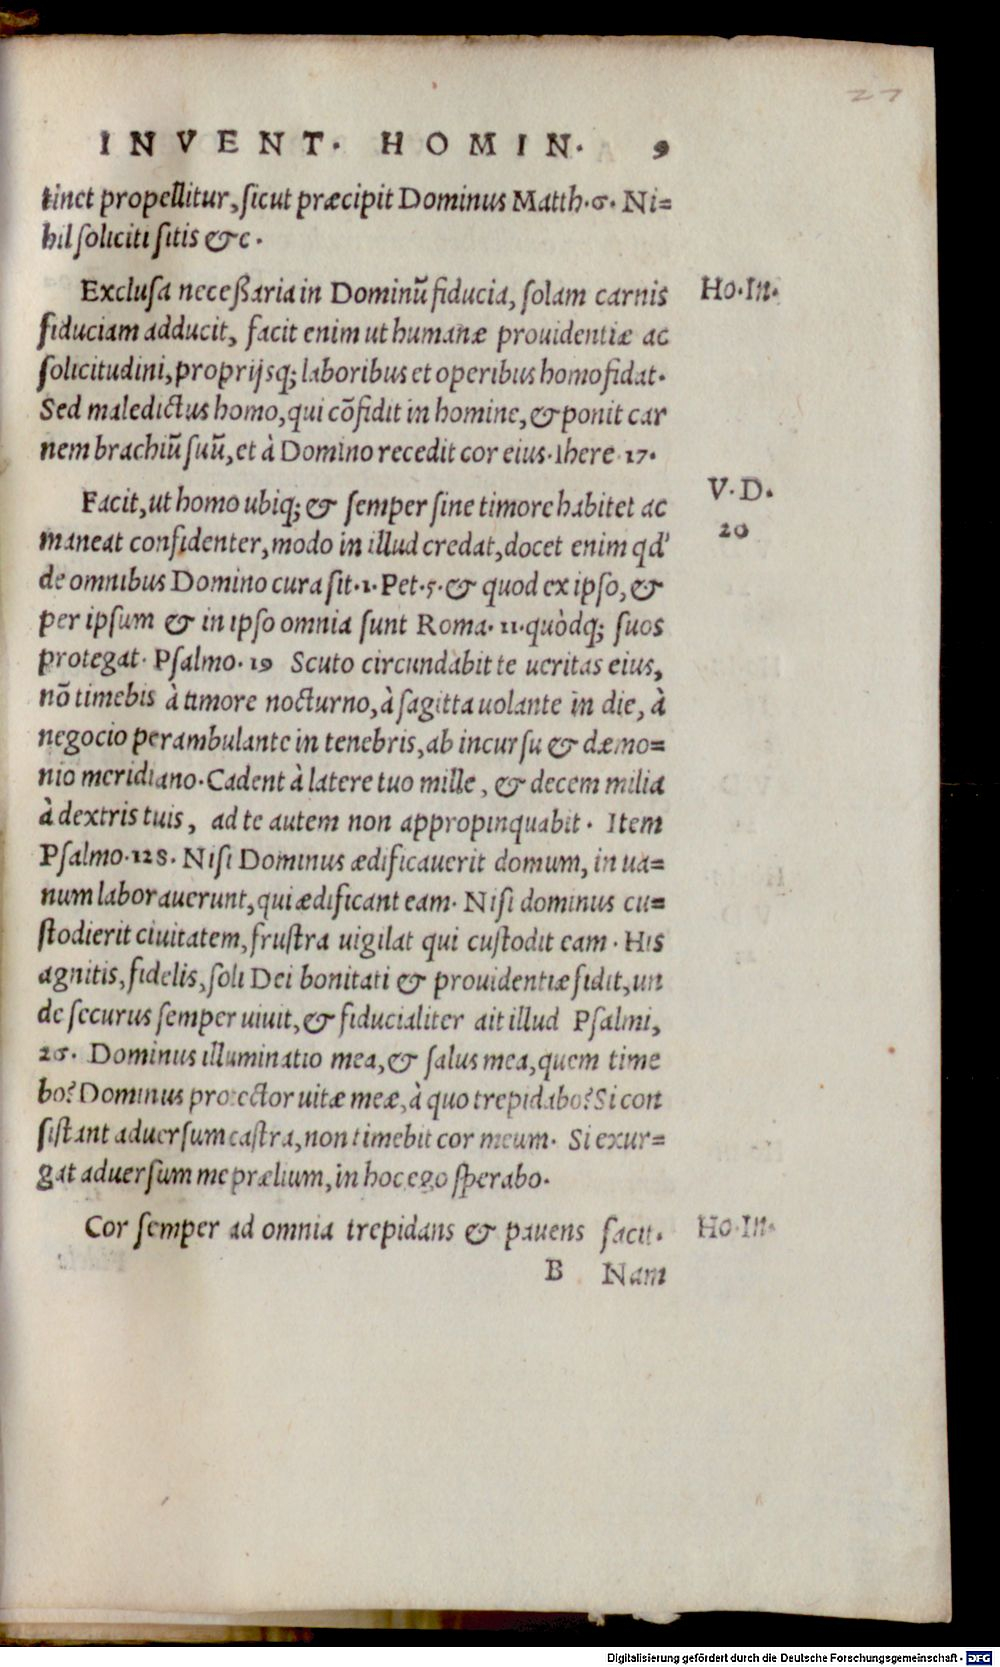 27
INVENT. HOMIN. 9
tinet propellitur, sicut præcipit Dominus Matth.6. Ni=
hil soliciti sitis &c.
Exclusa necessaria in Dominũ fiducia, solam carnis
Ho.In.
fiduciam adducit, facit enim ut humanæ prouidentiæ ac
solicitudini, proprijsq; laboribus et operibus homo fidat.
Sed maledictus homo, qui cõfidit in homine, & ponit car
nem brachiũ suũ, et à Domino recedit cor eius. Ihere 17.
Facit, ut homo ubiq; & semper sine timore habitet ac
V.D.
20
maneat confidenter, modo in illud credat, docet enim qd'
de omnibus Domino cura sit. 1. Pet. 5. & quod ex ipso, &
per ipsum & in ipso omnia sunt Roma. 11. quòdq; suos
protegat. Psalmo. 19 Scuto circundabit te ueritas eius,
nõ timebis à timore nocturno, à sagitta uolante in die, à
negocio perambulante in tenebris, ab incursu & dæmo=
nio meridiano. Cadent à latere tuo mille, & decem milia
à dextris tuis, ad te autem non appropinquabit. Item
Psalmo. 128. Nisi Dominus ædificauerit domum, in ua=
num laborauerunt, qui ædificant eam. Nisi dominus cu=
stodierit ciuitatem, frustra uigilat qui custodit eam. His
agnitis, fidelis, soli Dei bonitati & prouidentiæ fidit, un
de securus semper uiuit, & fiducialiter ait illud Psalmi,
26. Dominus illuminatio mea, & salus mea, quem time
bo? Dominus protector uitæ meæ, à quo trepidabo? Si con
sistant aduersum castra, non timebit cor meum. Si exur=
gat aduersum me prælium, in hoc ego sperabo.
Cor semper ad omnia trepidans & pauens facit.
Ho.In.
B Nam
Digitalisierung gefördert durch die Deutsche Forschungsgemeinschaft - DFG